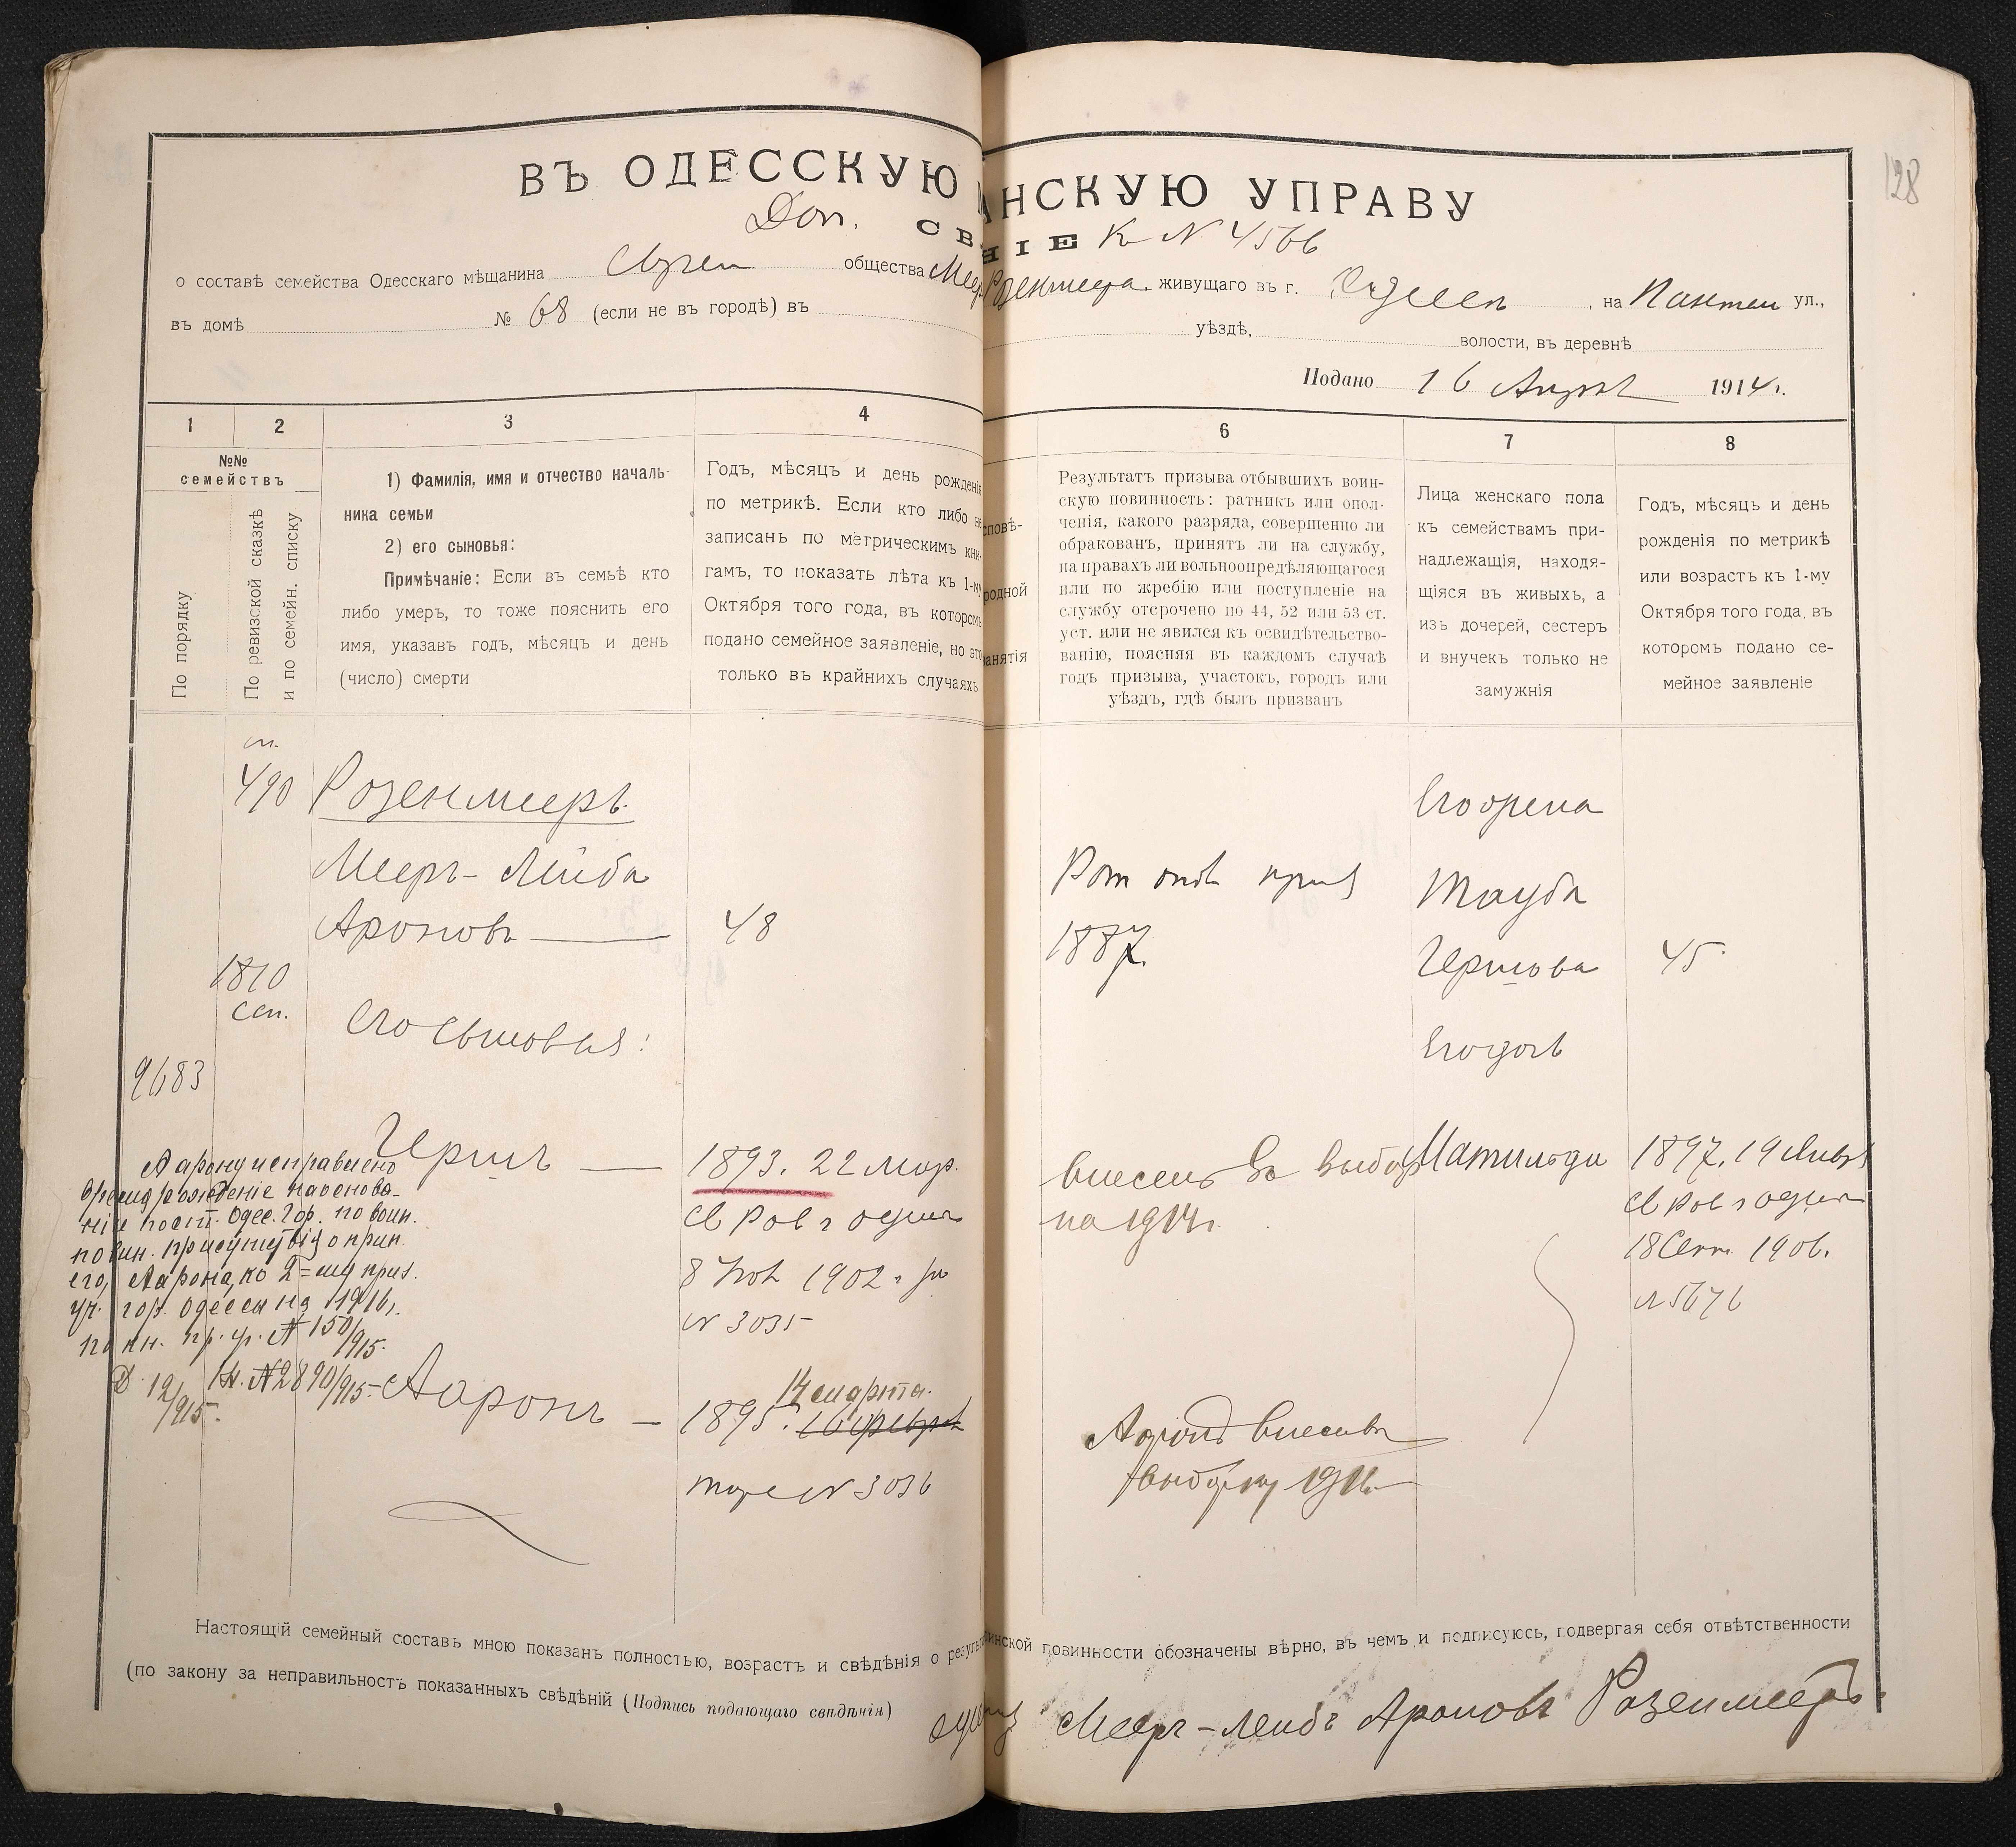 128
ВЪ ОДЕССКУЮ АНСКУЮ УПРАВУ
Доп. СВ НІЕ К N 4566
о составѣ семейства Одесскаго мѣщанина общества Меер Розенмеера живущаго въ г. Одессѣ, на Пантел ул.,
въ домѣ № 68 (если не въ городѣ) въ уѣздѣ, волости, въ деревнѣ
Подано 16 Апрѣл 1914 г.
1 2 3 4 6 7 8
№№
семействъ
По порядку
По ревизской сказкѣ
и по семейн. списку
1) Фамилія, имя и отчество началь-
ника семьи
2) его сыновья:
Примѣчаніе: Если въ семьѣ кто
либо умеръ, то тоже пояснить его
имя, указавъ годъ, мѣсяцъ и день
(число) смерти
Годъ, мѣсяцъ и день рожденія
по метрикѣ. Если кто либо не
записанъ по метрическимъ кни-
гамъ, то показать лѣта къ 1-му
Октября того года, въ которомъ
подано семейное заявленіе, но это
только въ крайнихъ случаяхъ
сповѣ-
родной
занятія
Результатъ призыва отбывшихъ воин-
скую повинность: ратникъ или опол-
ченія, какого разряда, совершенно ли
обракованъ, принятъ ли на службу,
на правахъ ли вольноопредѣляющагося
или по жребію или поступленіе на
службу отсрочено по 44, 52 или 53 ст.
уст. или не явился къ освидѣтельство-
ванію, поясняя въ каждомъ случаѣ
годъ призыва, участокъ, городъ или
уѣздъ, гдѣ былъ призванъ
Лица женскаго пола
къ семействамъ при-
надлежащія, находя-
щіяся въ живыхъ, а
изъ дочерей, сестеръ
и внучекъ только не
замужнія
Годъ, мѣсяцъ и день
рожденія по метрикѣ
или возрастъ къ 1-му
Октября того года, въ
которомъ подано се-
мейное заявленіе
490
Розенмееръ
Мееръ-Лейба
Ароновъ — 48
1887.
Тауба
Гершова 45
1810
сен.
Его сыновья:
Его дочь
9683
Гершъ — 1893. 22 мар.
Св Рав г одес
8 1902 г за
N 3035
внесенъ въ выбор
на 1914 г.
Матильда 1897. 19 Январ
Св Рав г одес
18 Сент 1906.
N 5676
Аарону исправлено
время рожденіе на основа-
ніи пост. Одес. Гор. по воин.
повин. присутствія о прип.
его, Аарона, ко 2-му приз.
уч. гор. Одессы на 1916 г.
по кн. пр. N 150/915.
Д. 12/915. N 2890/915.
Ааронъ — 1895. 14 марта.
16 февра
тоже N 3036
Ааронъ внесенъ
в выборку 1916
Настоящій семейный составъ мною показанъ полностью, возрастъ и свѣдѣнія о результ инской повинности обозначены вѣрно, въ чемъ и подписуюсь, подвергая себя отвѣтственности
(по закону за неправильность показанныхъ свѣдѣній (Подпись подающаго свѣдѣнія)
Мееръ-Лейбъ Ароновъ Розенмееръ